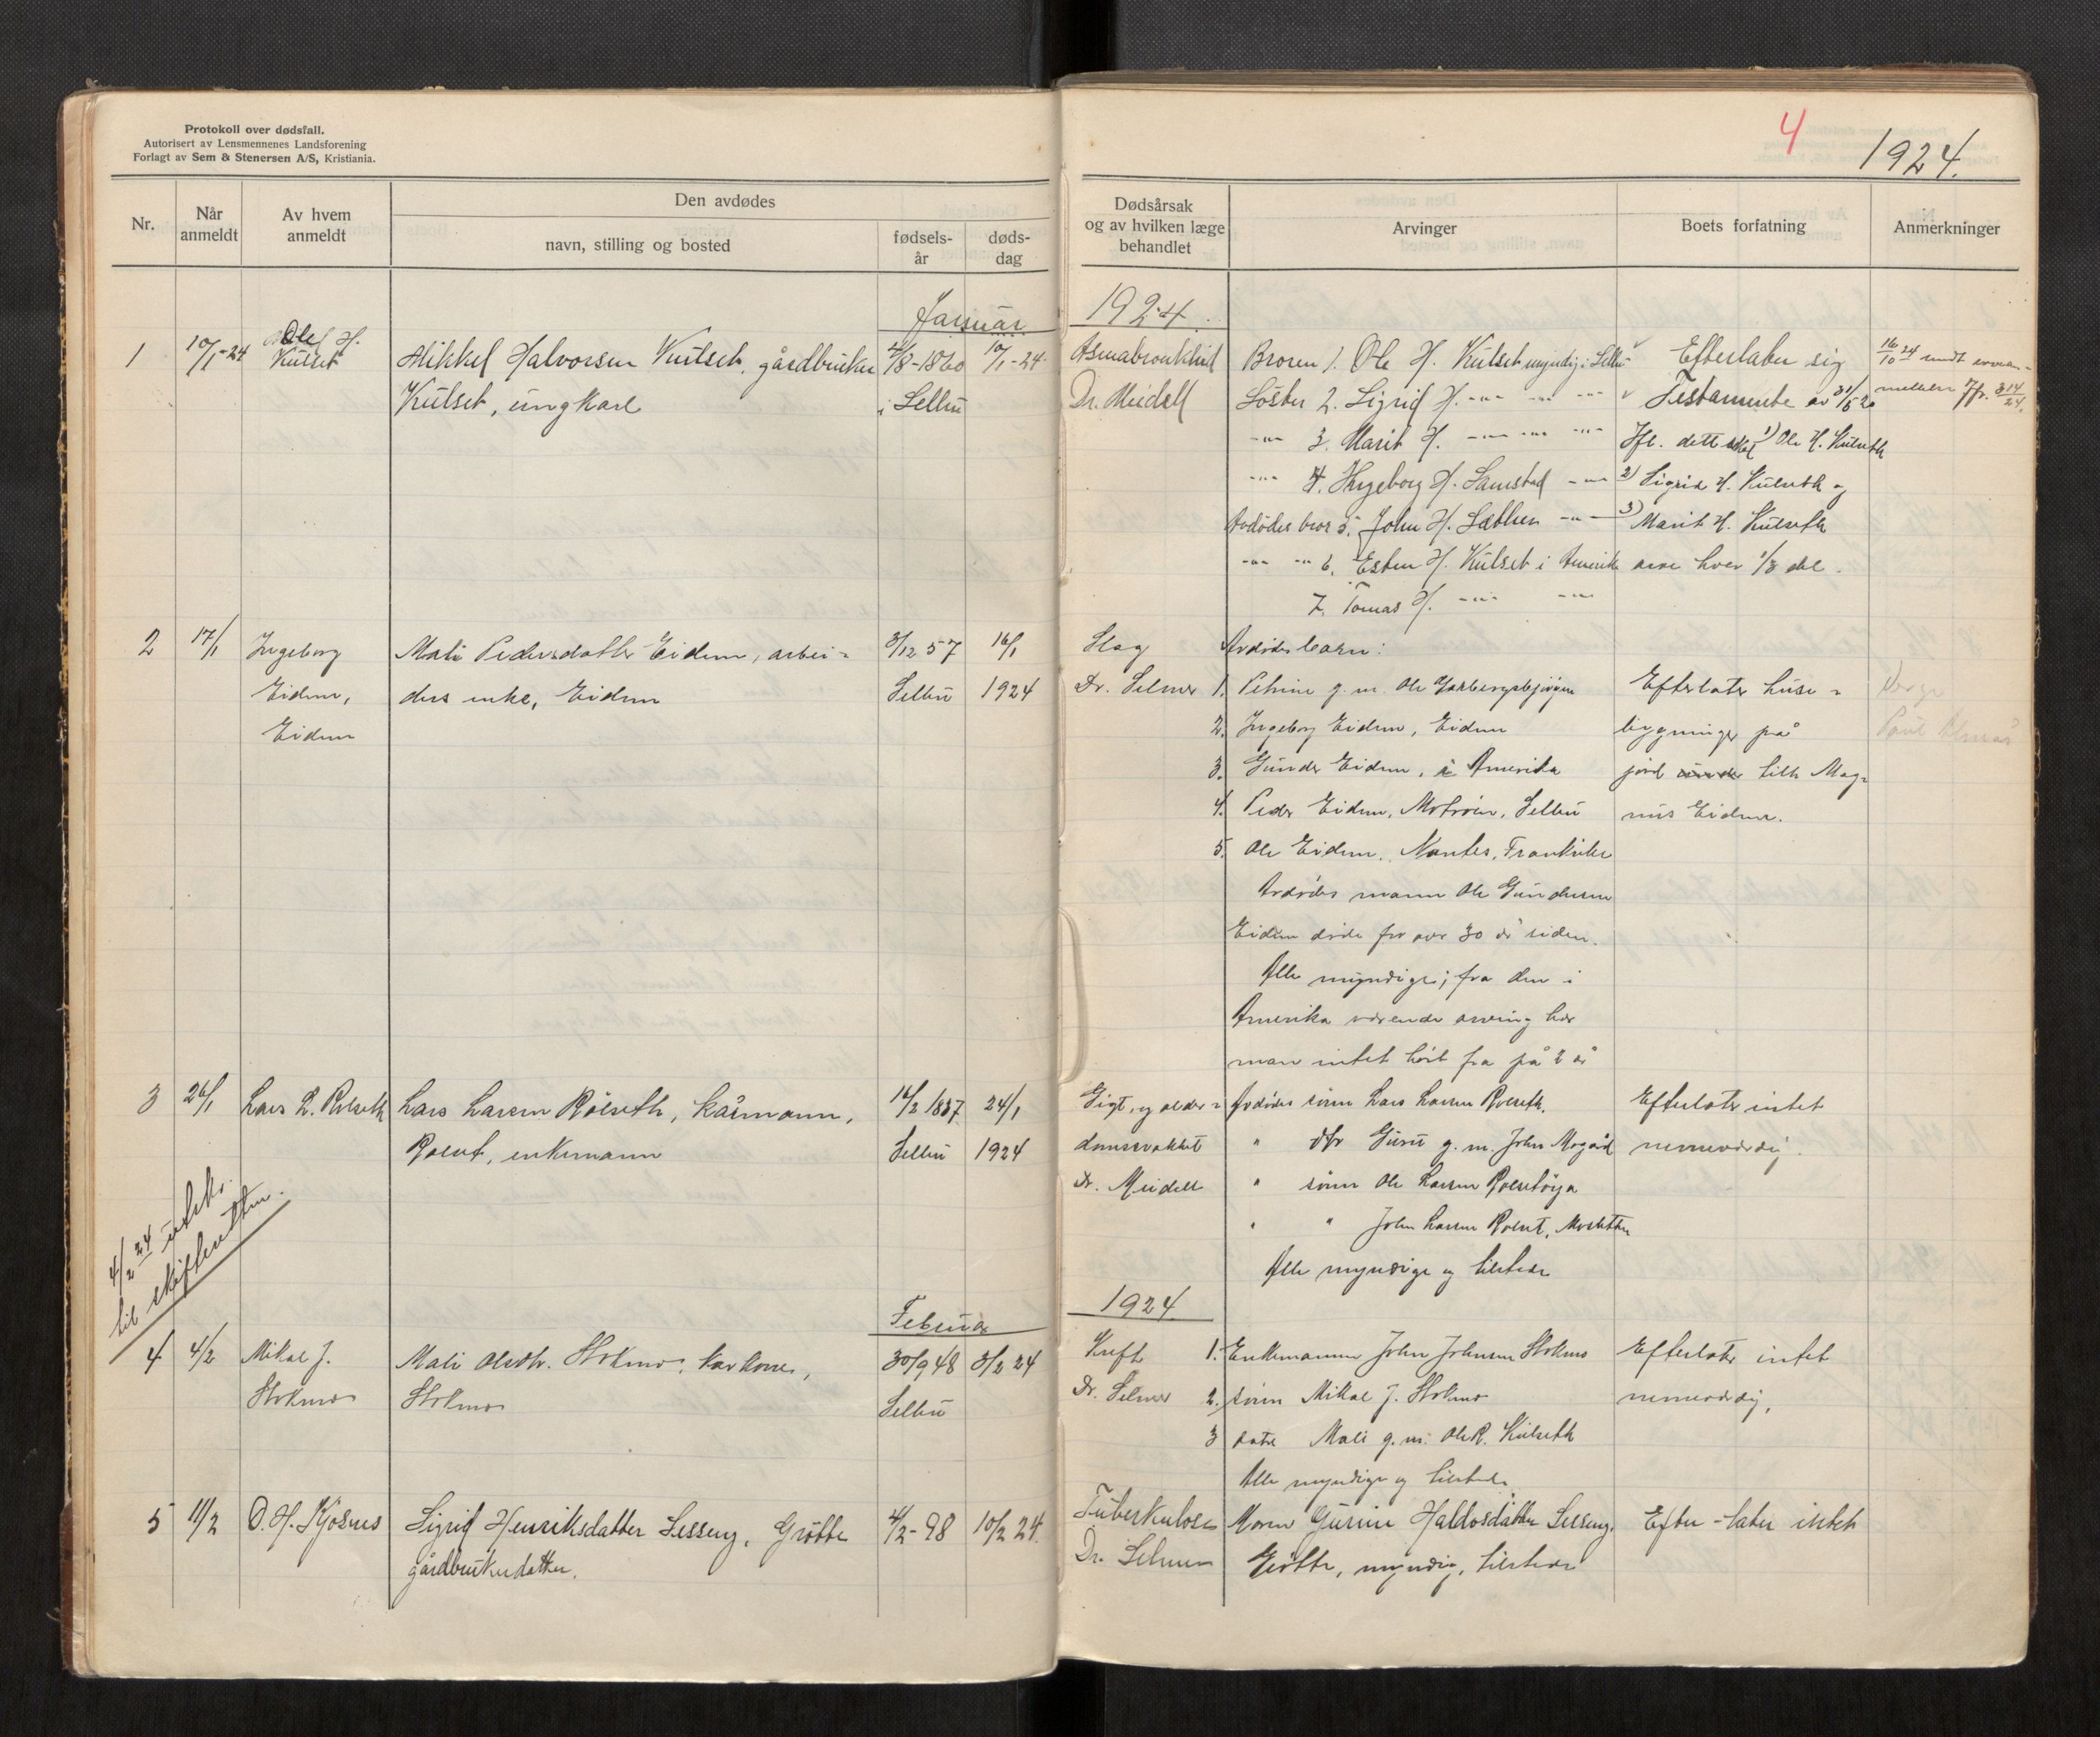 Protokoll over dødsfall.
Autorisert av Lensmennenes Landsforening
Forlagt av Sem & Stenersen A/S, Kristiania.
4
1924.
Nr.
Når
anmeldt
Av hvem
anmeldt
Den avdødes
navn, stilling og bosted
fødsels-
år
døds-
dag
Dødsårsak
og av hvilken læge
behandlet
Arvinger
Boets forfatning
Anmerkninger
Januar
1924.
1
10/1-24
Ole H.
Kulset
Mikkel Halvorsen Kulset, gårdbruker
Kulset, ungkarl
/8-1860
i Selbu
10/1-24
Dr. Meidell
Broren 1. Ole H. Kulset myndig i Selbu
Söster 2. Sigrid H. -"- -"- -"-
-"- 3. Marit H. -"- -"- -"-
-"- 4. Ingeborg H. Samstad -"-
Avdödes bror 5. John H. Sæther -"-
-"- -"- 6. Esten H. Kulset i Amerika
7. Tomas H. -"- -"-
Efterlater sig
Testamente av 31/5 20
Jfr. dette skal 1) Ole H. Kulseth
2) Sigrid H. Kulseth og
3) Marit H. Kulseth
arve hver 1/3 del.
16/10 24 sendt
Jfr. 314/24.
2
17/1
Ingeborg
Eidem,
Eidem
Mali Pedersdatter Eidem, arbei-
ders enke, Eidem
3/12 57
Selbu
16/1
1924
Slag
Dr. Selmer
Avdödes barn:
1. Petrine g. m. Ole
2. Ingeborg Eidem, Eidem
3. Gunder Eidem, i Amerika
4. Peder Eidem, Selbu
5. Ole Eidem, Nantes, Frankrike
Avdödes mann Ole Gundersen
Eidem döde for over 30 år siden.
Alle myndige; fra den i
Amerika værende arving har
man intet hört fra på 2 år
Efterlater hus-
bygninger på
jord under tilh. Mag-
nus Eidem.
Verge
Paul
3
26/1
Lars L. Rolseth
Lars Larsen Rolseth, kårmann,
Rolset, enkemann
14/2 1837
Selbu
24/1
1924
Gigt, og alder-
domssvakhet
Dr. Meidell
Avdödes sönn Lars Larsen Rolseth,
" dtr Guru g. m. John Mogård
" sönn Ole Larsen Rolsetöya
" " John Larsen Rolset,
Alle myndige og tilstede
Efterlater intet
nevneværdig.
4/2 24 utskr.
til skifteretten.
Februar
1924
4
4/2
Mikal J.
Stokmo
Mali Olsdtr. Stokmo, kårkone,
Stokmo
30/9 48
Selbu
3/2 24
Kreft
Dr. Selmer
1. Enkemannen John Johnsen Stokmo
2. sönn Mikal J. Stokmo
3 datr Mali g. m. Ole R. Kulseth
Alle myndige og tilstede
Efterlater intet
nevneværdig.
5
11/2
O. H. Kjösnes
Sigrid Henriksdatter Sesseng, Grötte
gårdbrukerdatter.
/2-98
10/2 24.
Tuberkulose
Dr. Selmer
Moren Gurine Haldosdatter Sesseng,
Grötte, myndig, tilstede
Efter-later intet